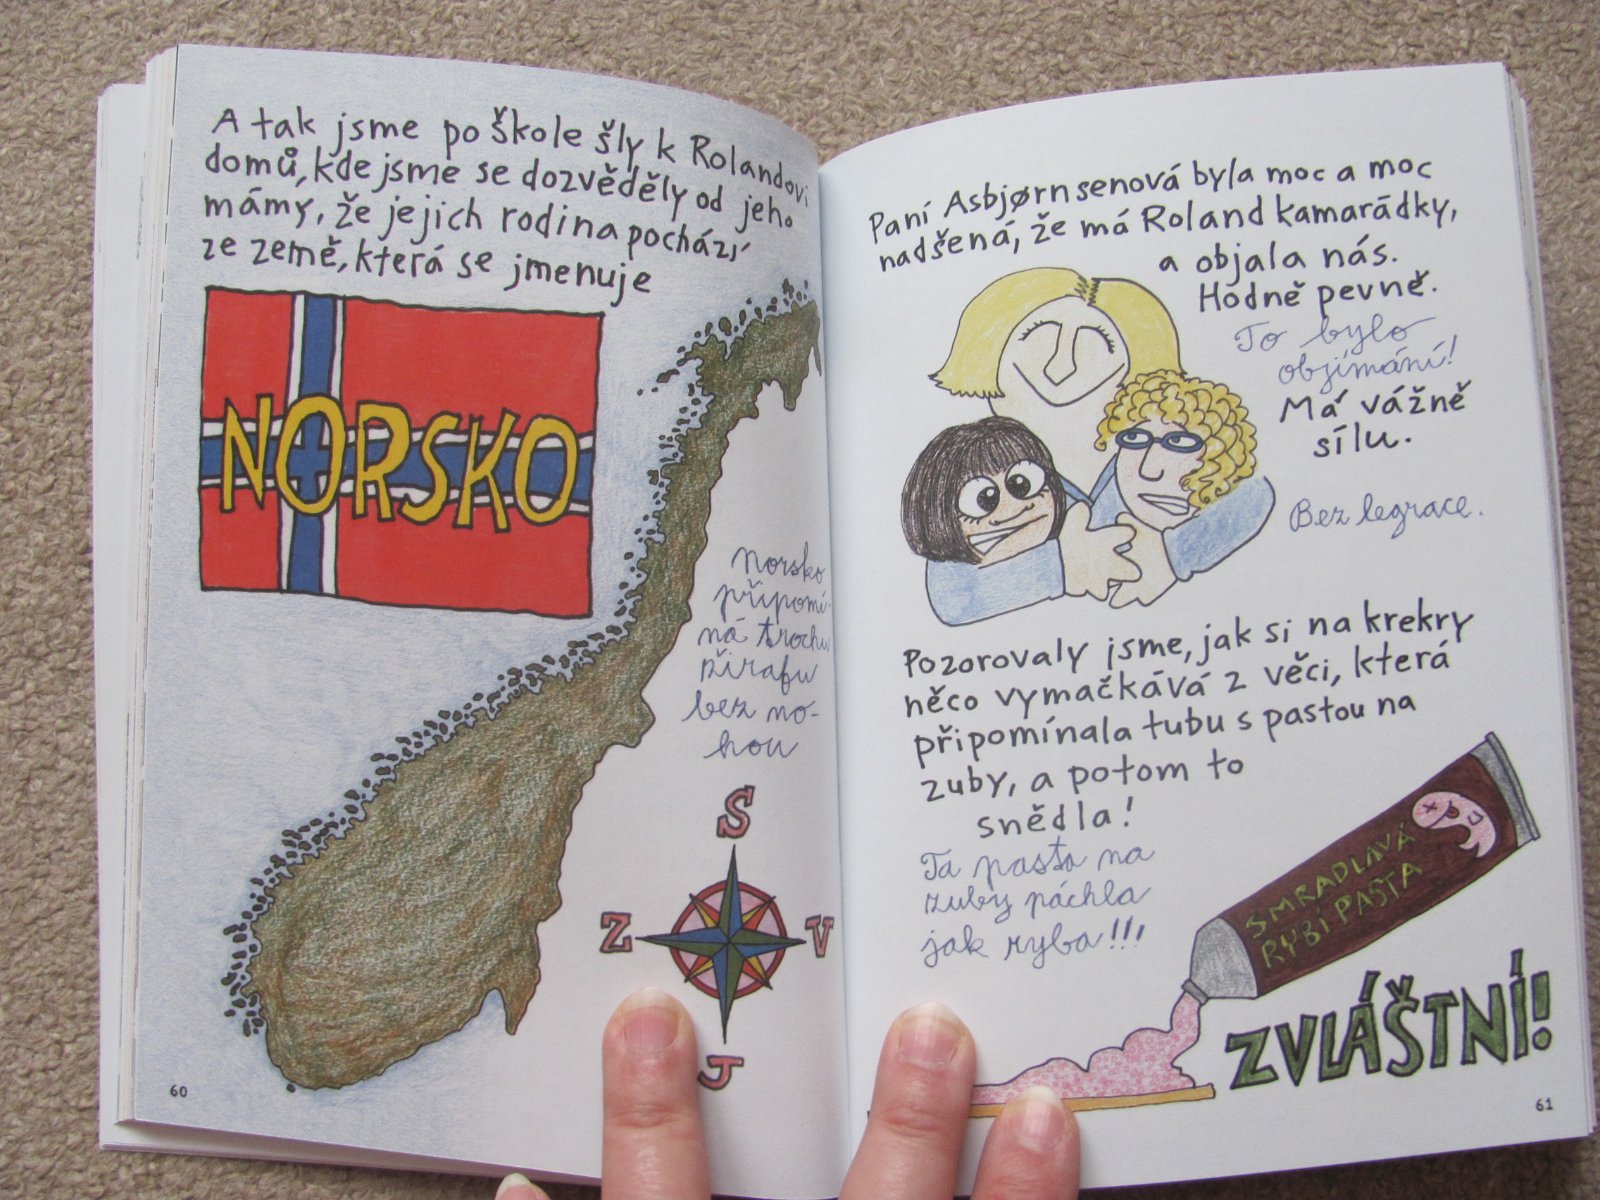 A tak jsme po škole šly k Rolandovi
domů, kde jsme se dozvěděly od jeho
mámy, že jejich rodina pochází
ze země, která se jmenuje
NORSKO
Norsko
připomí-
ná trochu
žirafu
bez no-
hou
S
Z V
J
60
Paní Asbjørnsenová byla moc a moc
nadšená, že má Roland kamarádky,
a objala nás.
Hodně pevně.
To bylo
objímání!
Má vážně
sílu.
Bez legrace.
Pozorovaly jsme, jak si na krekry
něco vymačkává z věci, která
připomínala tubu s pastou na
zuby, a potom to
snědla!
Ta pasta na
zuby páchla
jak ryba!!!
SMRADLAVÁ
RYBÍ PASTA
ZVLÁŠTNÍ!
61